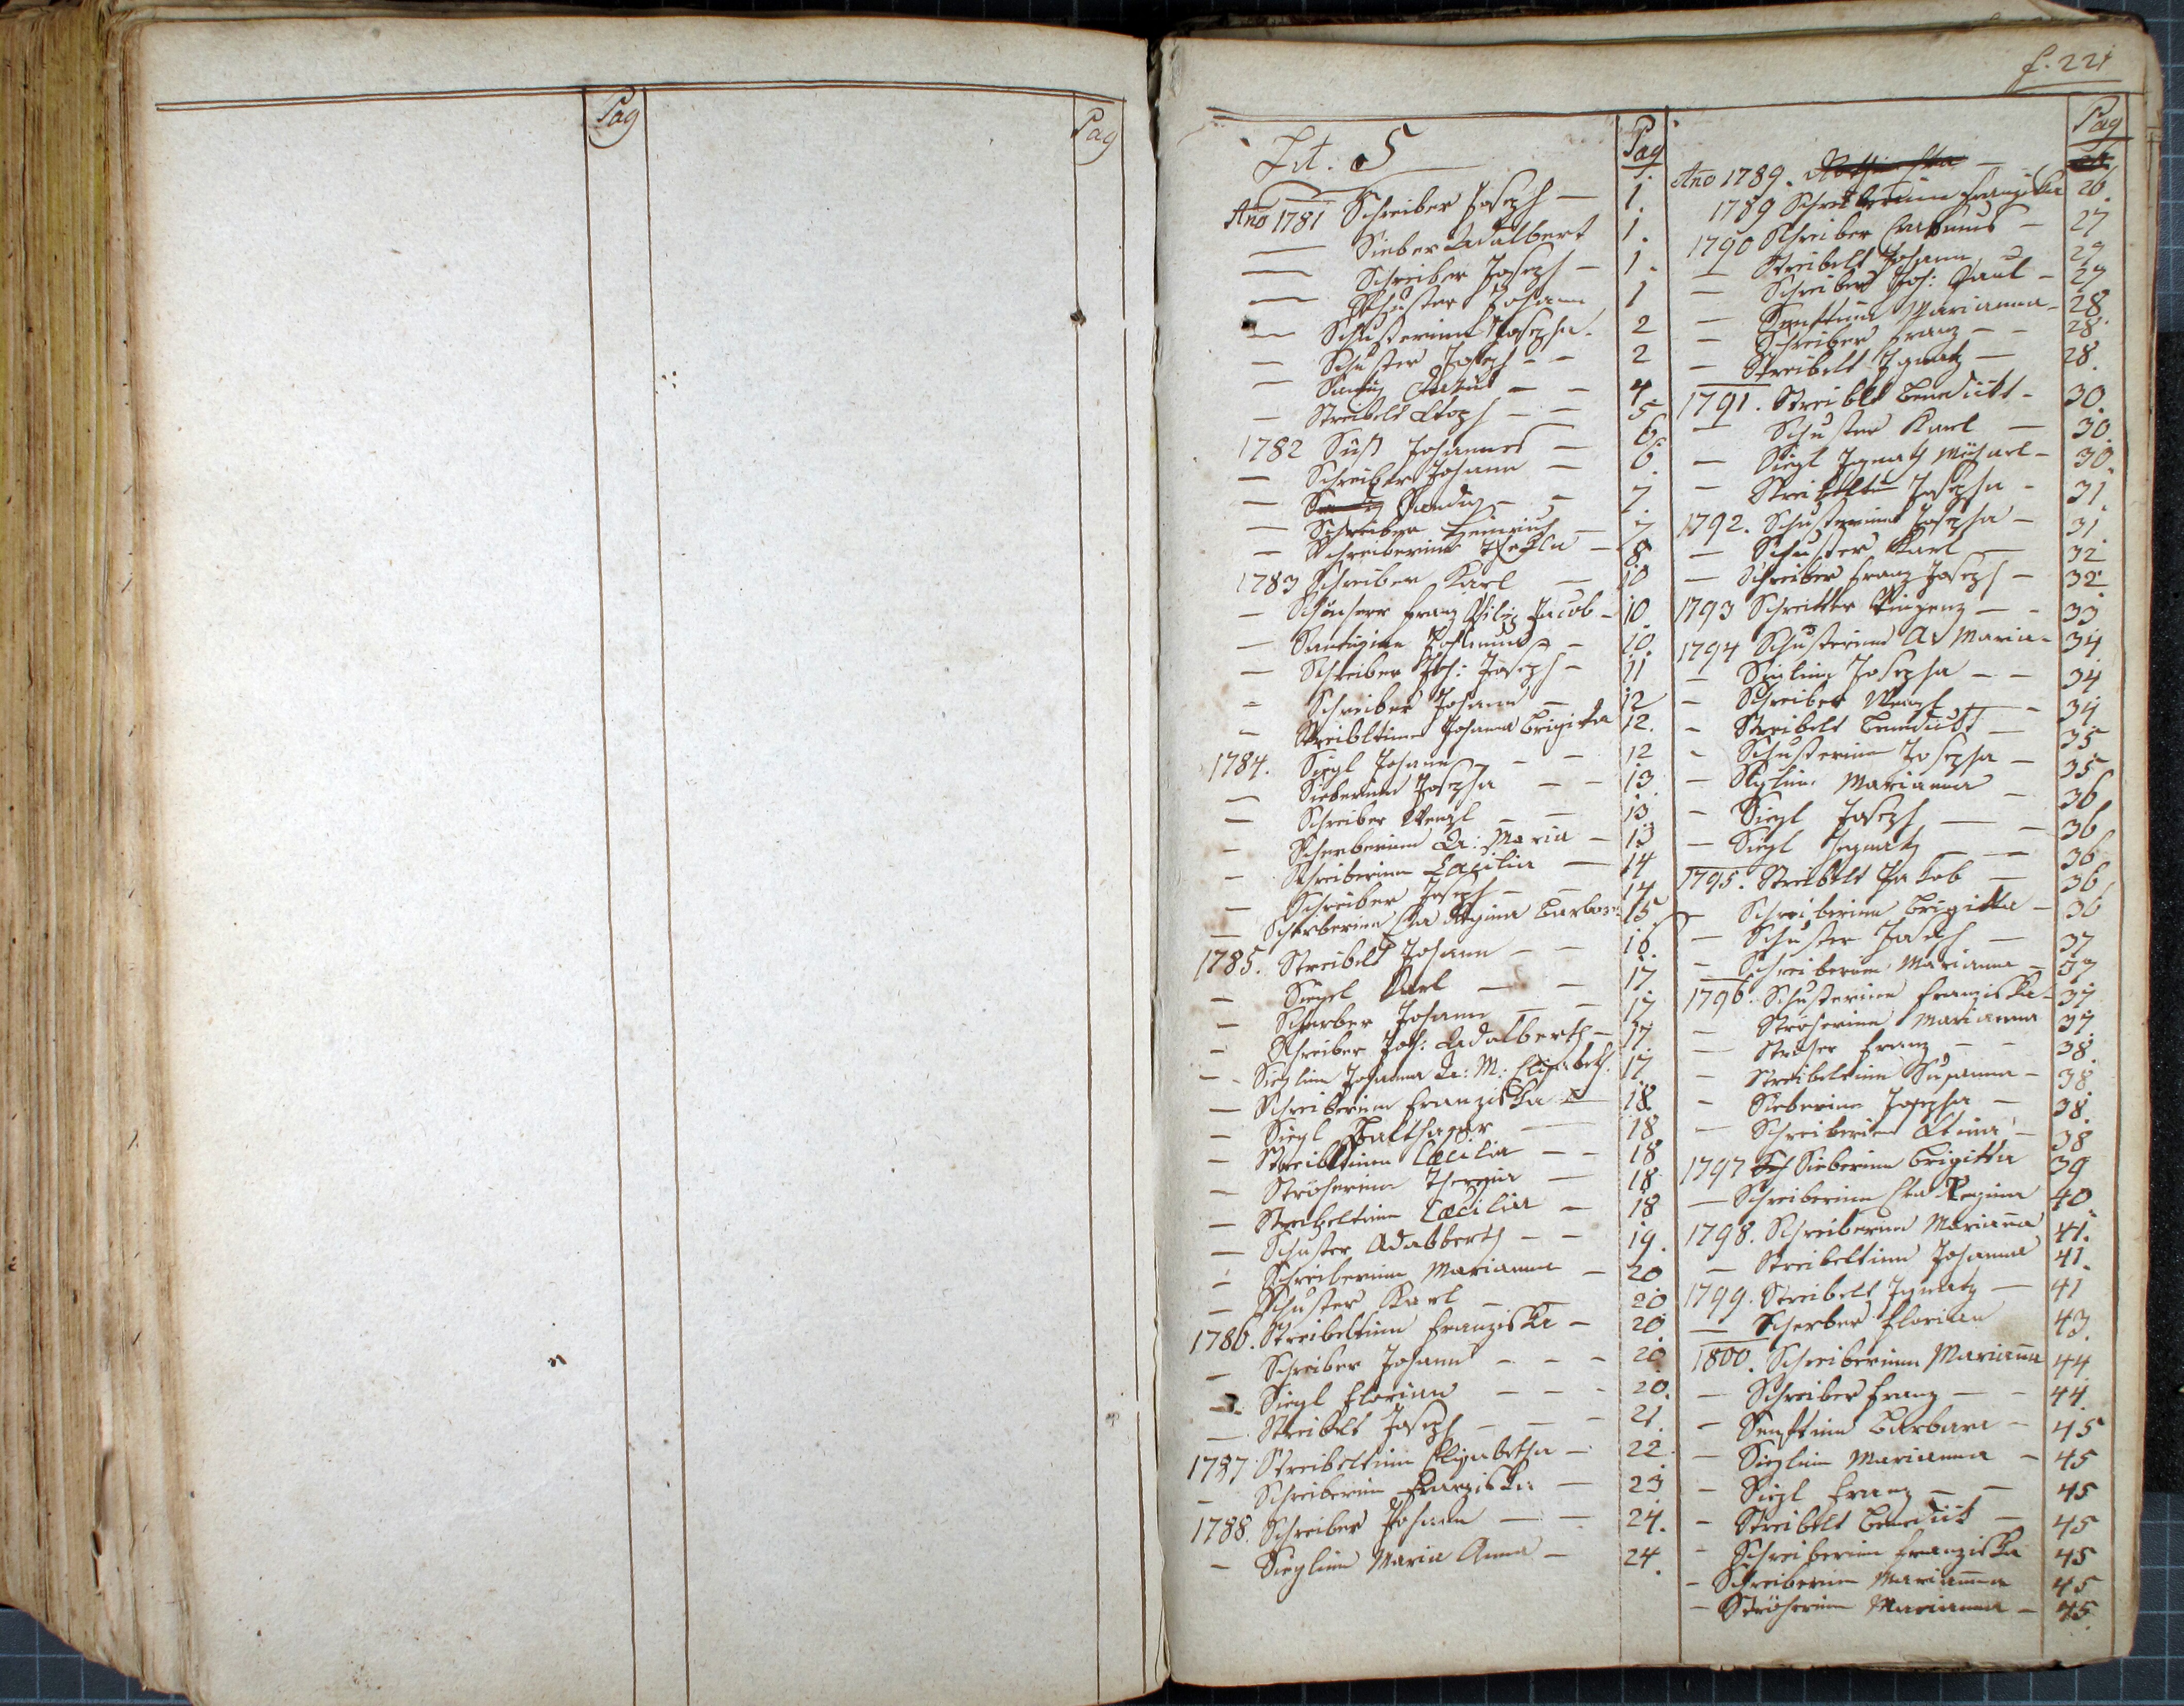 Pag
Pag
f. 221
Lit. S
Pag
Ano 1781 Schreiber Joseph — 1.
— Sieber Adalbert 1.
— Schreiber Joseph — 1.
— Schuster Johann 1
— Schusterinn Josepha. 2
— Schuster Joseph — — 2
— — — 4
— Streibelt — — 5
1782 Süß Johannes — 6
— Schreiber Johann — 6.
— — — 7.
— Schreiber Heinrich — 7
— Schreiberinn Thekla — 8
1783 Schreiber Karl — 10
— Franz Philip Jacob — 10.
— — 10.
— Schreiber Joh: Joseph — 11
— Schreiber Johann — 12
— Streibltinn Johanna Brigitta 12.
1784. Siegl Johann — — 12
— Sieberinn Josepha — — 13.
— Schreiber Wenzl — — 13
— Scherberinn A: Maria — 13
— Schreiberinn Cacilia — 14
— Schreiber Joseph — — 14
— Scherberinn Eva Regina Barbara 15.
1785. Streibelt Johann — — 16.
— Siegel Karl — — 17
— Scherber Johann — — 17
— Schreiber Joh: Adalberth — 17
— Sieglinn Johanna A: M: Elisabeth. 17
— Schreiberinn Franziska — 18
— Siegl Balthasar — 18
— Streibltinn Cæcilia — — 18
— Ströherinn Theresia — 18
— Streibeltinn Cæcilia — 18
— Schuster Adalberth — — 19.
— Schreiberinn Marianna — 20
— Schuster Karl — — 20
1786. Streibeltinn Franziska — 20
— Schreiber Johann — — — 20
— Siegl Florian — — — 20.
— Streiblt Joseph — — — 21
1787. Streibeltinn Elisabetha — 22
— Schreiberinn Franziska — 23
1788. Schreiber Johann — — 24.
— Sieglinn Maria Anna — 24.
Pag
Ano 1789.
1789 Schreiberinn Franziska 26
1790 Schreiber Erasmus — 27
— Streibelt Johann 29
— Schreiber Joh: Paul — 27
— Senftinn Marianna — 28
— Schreiber Franz — — 28
— Streibelt Ignatz — 28.
1791. Streiblt Benedickt — 30.
— Schuster Karl — 30
— Siegl Ignatz Michael — 30
— Streibeltin Josepha — 31
1792. Schusterinn Josepha — 31
— Schuster Karl — 32
— Schreiber Franz Joseph — 32
1793 Vinzenz — — 33
1794 Schusterinn A Maria — 34
— Sieglinn Josepha — — 34
— Schreiber Wenzl — 34
— Streibelt Benedickt — 35
— Schusterinn Josepha — 35
— Sieglinn Marianna — 36
— Siegl Joseph — 36
— Siegl Ignatz — 36
1795. Streiblt Jakob — 36
— Schreiberinn Brigitta — 36
— Schuster Joseph — 37
— Schreiberinn Marianna — 37
1796. Schusterinn Franziska — 37
— Ströherinn Marianna 37
— Ströher Franz — — 38
— Streibeltinn Susanna — 38
— Sieberinn Josepha — 38.
— Schreiberinn Anna — 38
1797 Sieberinn Brigitta 39
— Schreiberinn Eva Regina 40
1798. Schreiberinn Mariana 41.
— Streibeltinn Johanna 41
1799. Streibelt Ignatz — 41
— Scherber Florian 43
1800. Schreiberinn Mariana 44
— Schreiber Franz — — 44
— Senftinn Barbara — 45
— Sieglinn Marianna — 45
— Siegl Franz — — 45
— Streibelt Benedict — 45
— Schreiberinn Franziska 45
— Schreiberinn Marianna 45
— Ströherinn Marianna — 45.